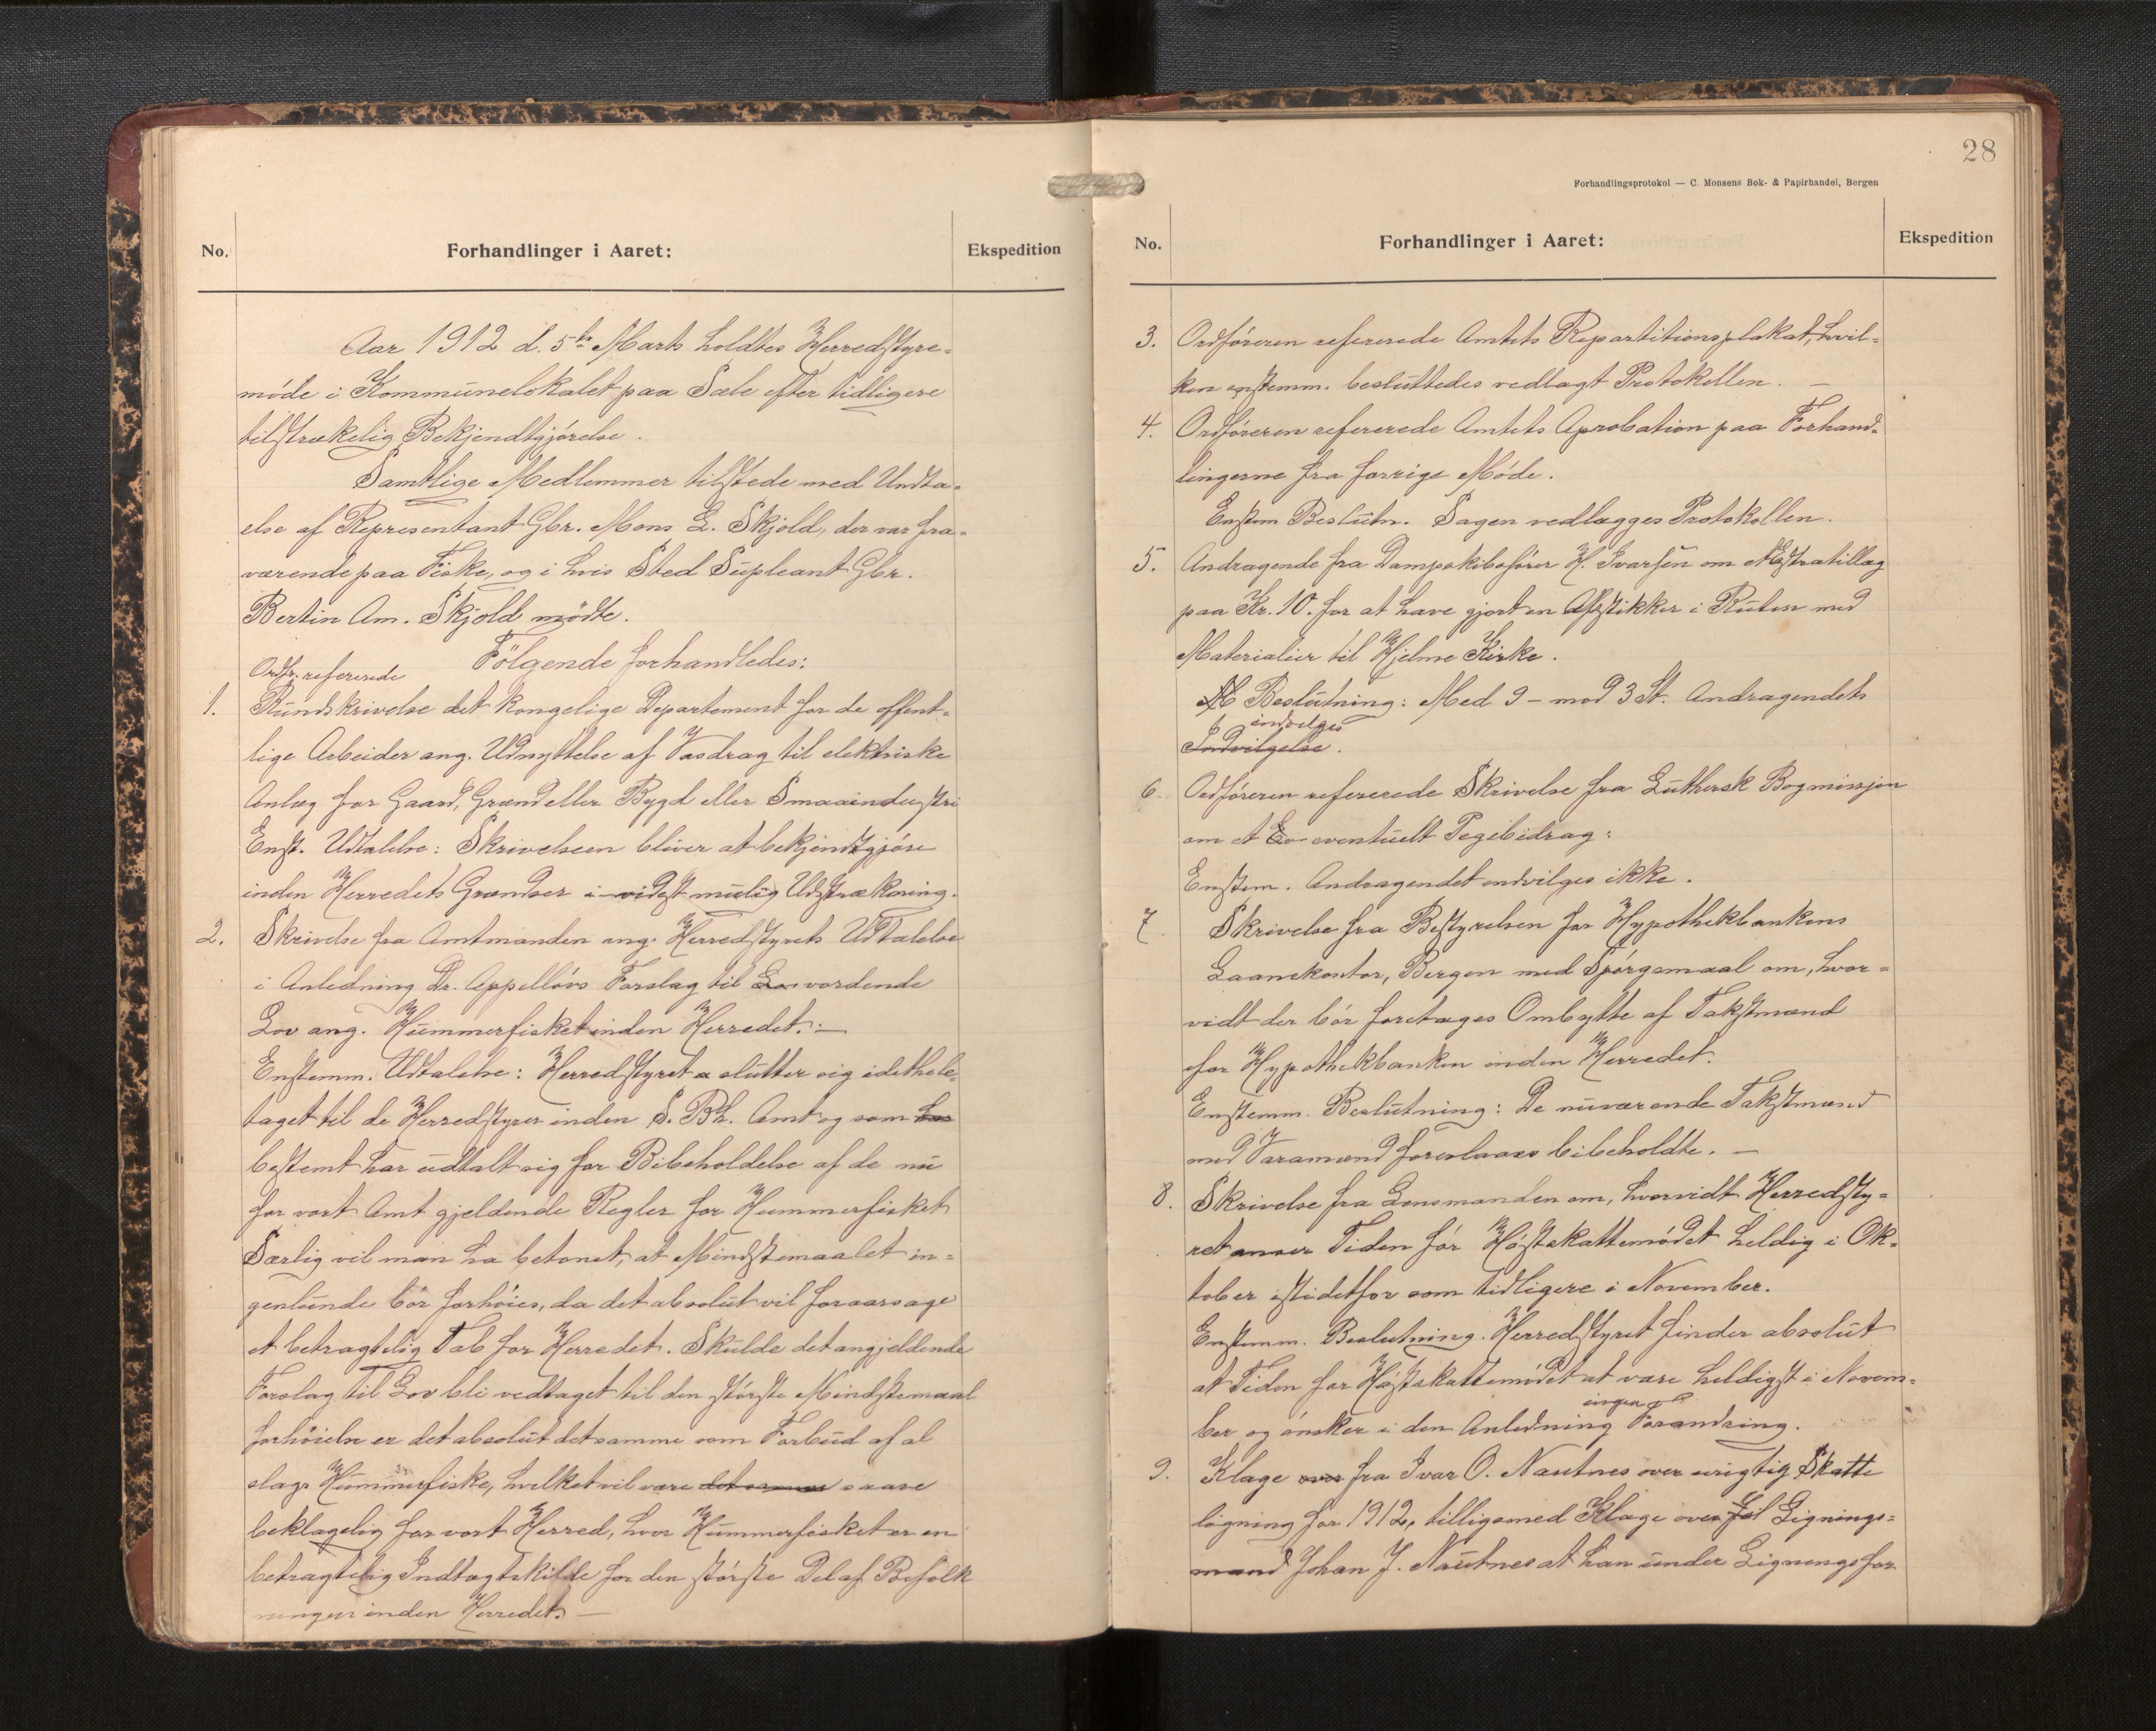 No.
Forhandlinger i Aaret:
Ekspedition
Aar 1912 d. 5te Marts holdtes Herredstyre-
möde i Kommunelokalet paa Sæle efter tidligere
tilstrækelig Bekjendtgjörelse.
Samtlige Medlemmer tilstede med Undta-
else af Representant Gbr. Mons L. Skjold, der var fra-
værende paa Fiske, og i hvis Sted Supleant Gbr.
Bertin Am. Skjold mødte.
Fölgende forhandledes:
Ordfr. refererede
1. Rundskrivelse det kongelige Departement for de offent-
lige Arbeider ang. Udnyttelse af Vasdrag til elektriske
Anlæg for Gaard, Grænd eller Bygd eller Smaaindustri
Enst. Udtalelse: Skrivelseen bliver at bekjendtgjöre
inden Herredets Grændser i videst mulig Udstrækning.
2. Skrivelse fra Amtmanden ang. Herredstyrets Udtalelse
i Anledning Dr. Appelløvs Forslag til Lov vordende
Lov ang. Hummerfisket inden Herredet. :-
Enstemm. Udtalelse: Herredstyret a slutter sig idethele-
taget til de Herredstyrer inden S. Bh. Amt og som har
bestemt har udtalt sig for Bibeholdelse af de nu
for vort Amt gjeldende Regler for Hummerfisket
Særlig vil man ha betonet, at Mindstemaalet in-
genlunde bör forhöies, da det absolut vil foraarsage
et betragtelig Tab for Herredet. Skulde det angjeldende
Forslag til Lov bli vedtaget til den störste Mindstemaal
forhöielse er det absolut det samme som Forbud af al
slags Hummerfiske, hvilket vil være det samme saare
beklagelig for vort Herred, hvor Hummerfisket er en
betragtelig Indtægtskilde for den störste Del af Befolk
ningen inden Herredet. —
28
Forhandlingsprotokol — C. Monsens Bok- & Papirhandel, Bergen
No.
Forhandlinger i Aaret:
Ekspedition
3. Ordföreren refererede Amtets Repartitionsplakat, hvil-
ken enstemm. besluttedes vedlagt Protokollen. —
4. Ordföreren refererede Amtets Aprobation paa Forhand-
lingerne fra forrige Möde.
Enstem Beslutn. Sagen vedlægges Protokollen.
5. Andragende fra Dampskibsförer H. Ivarsen om Ekstratillæg
paa Kr. 10. for at have gjort en Afstikker i Ruten med
Materialier til Hjelme Kirke.
Beslutning: Med 9 - mod 3 St. Andragendets
indvilges
Indvilgelse.
6. Ordföreren refererede Skrivelse fra Luthersk Bogmissjon
om et Ev eventuelt Pegebidrag:
Enstem. Andragendet indvilges ikke.
7. Skrivelse fra Bestyrelsen for Hypothekbankens
Laanekontor, Bergen med Spörgsmaal om, hvor-
vidt der bör foretages Ombytte af Takstmænd
for Hypothekbanken inden Herredet.
Enstemm. Beslutning: De nuværende Takstmænd
med Varamænd foreslaaes bibeholdte. —
8. Skrivelse fra Lensmanden om, hvorvidt Herredsty-
ret anser Tiden för Höstskattemödet heldig i Ok-
tober istedetfor som tidligere i November.
Enstemm. Beslutning. Herredstyret finder absolut
at Tiden for Höstskattemödet at være heldigst i Novem-
ber og önsker i den Anledning Forandring.
ingen
9. Klage over fra Ivar O. Nautnes over urigtig Skatte
ligning for 1912, tilligemed Klage over fol Lignings-
mand Johan J. Nautnes at han under Ligningsfor